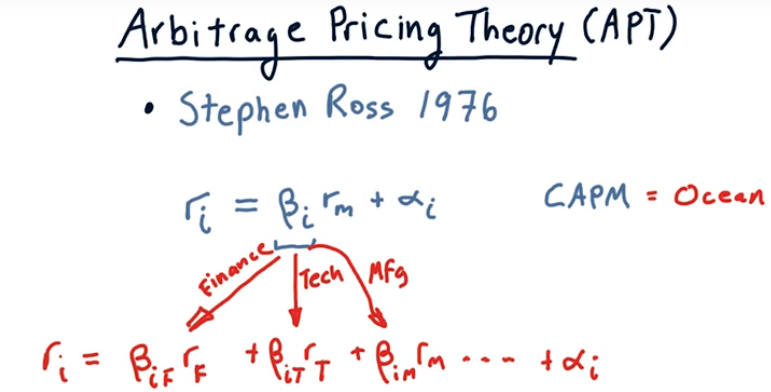 Arbitrage Pricing Theory (APT)
• Stephen Ross 1976
rᵢ = βᵢ rₘ + αᵢ CAPM = Ocean
Finance Tech Mfg
rᵢ = βᵢF rF + βᵢT rT + βᵢₘ rₘ ---- + αᵢ